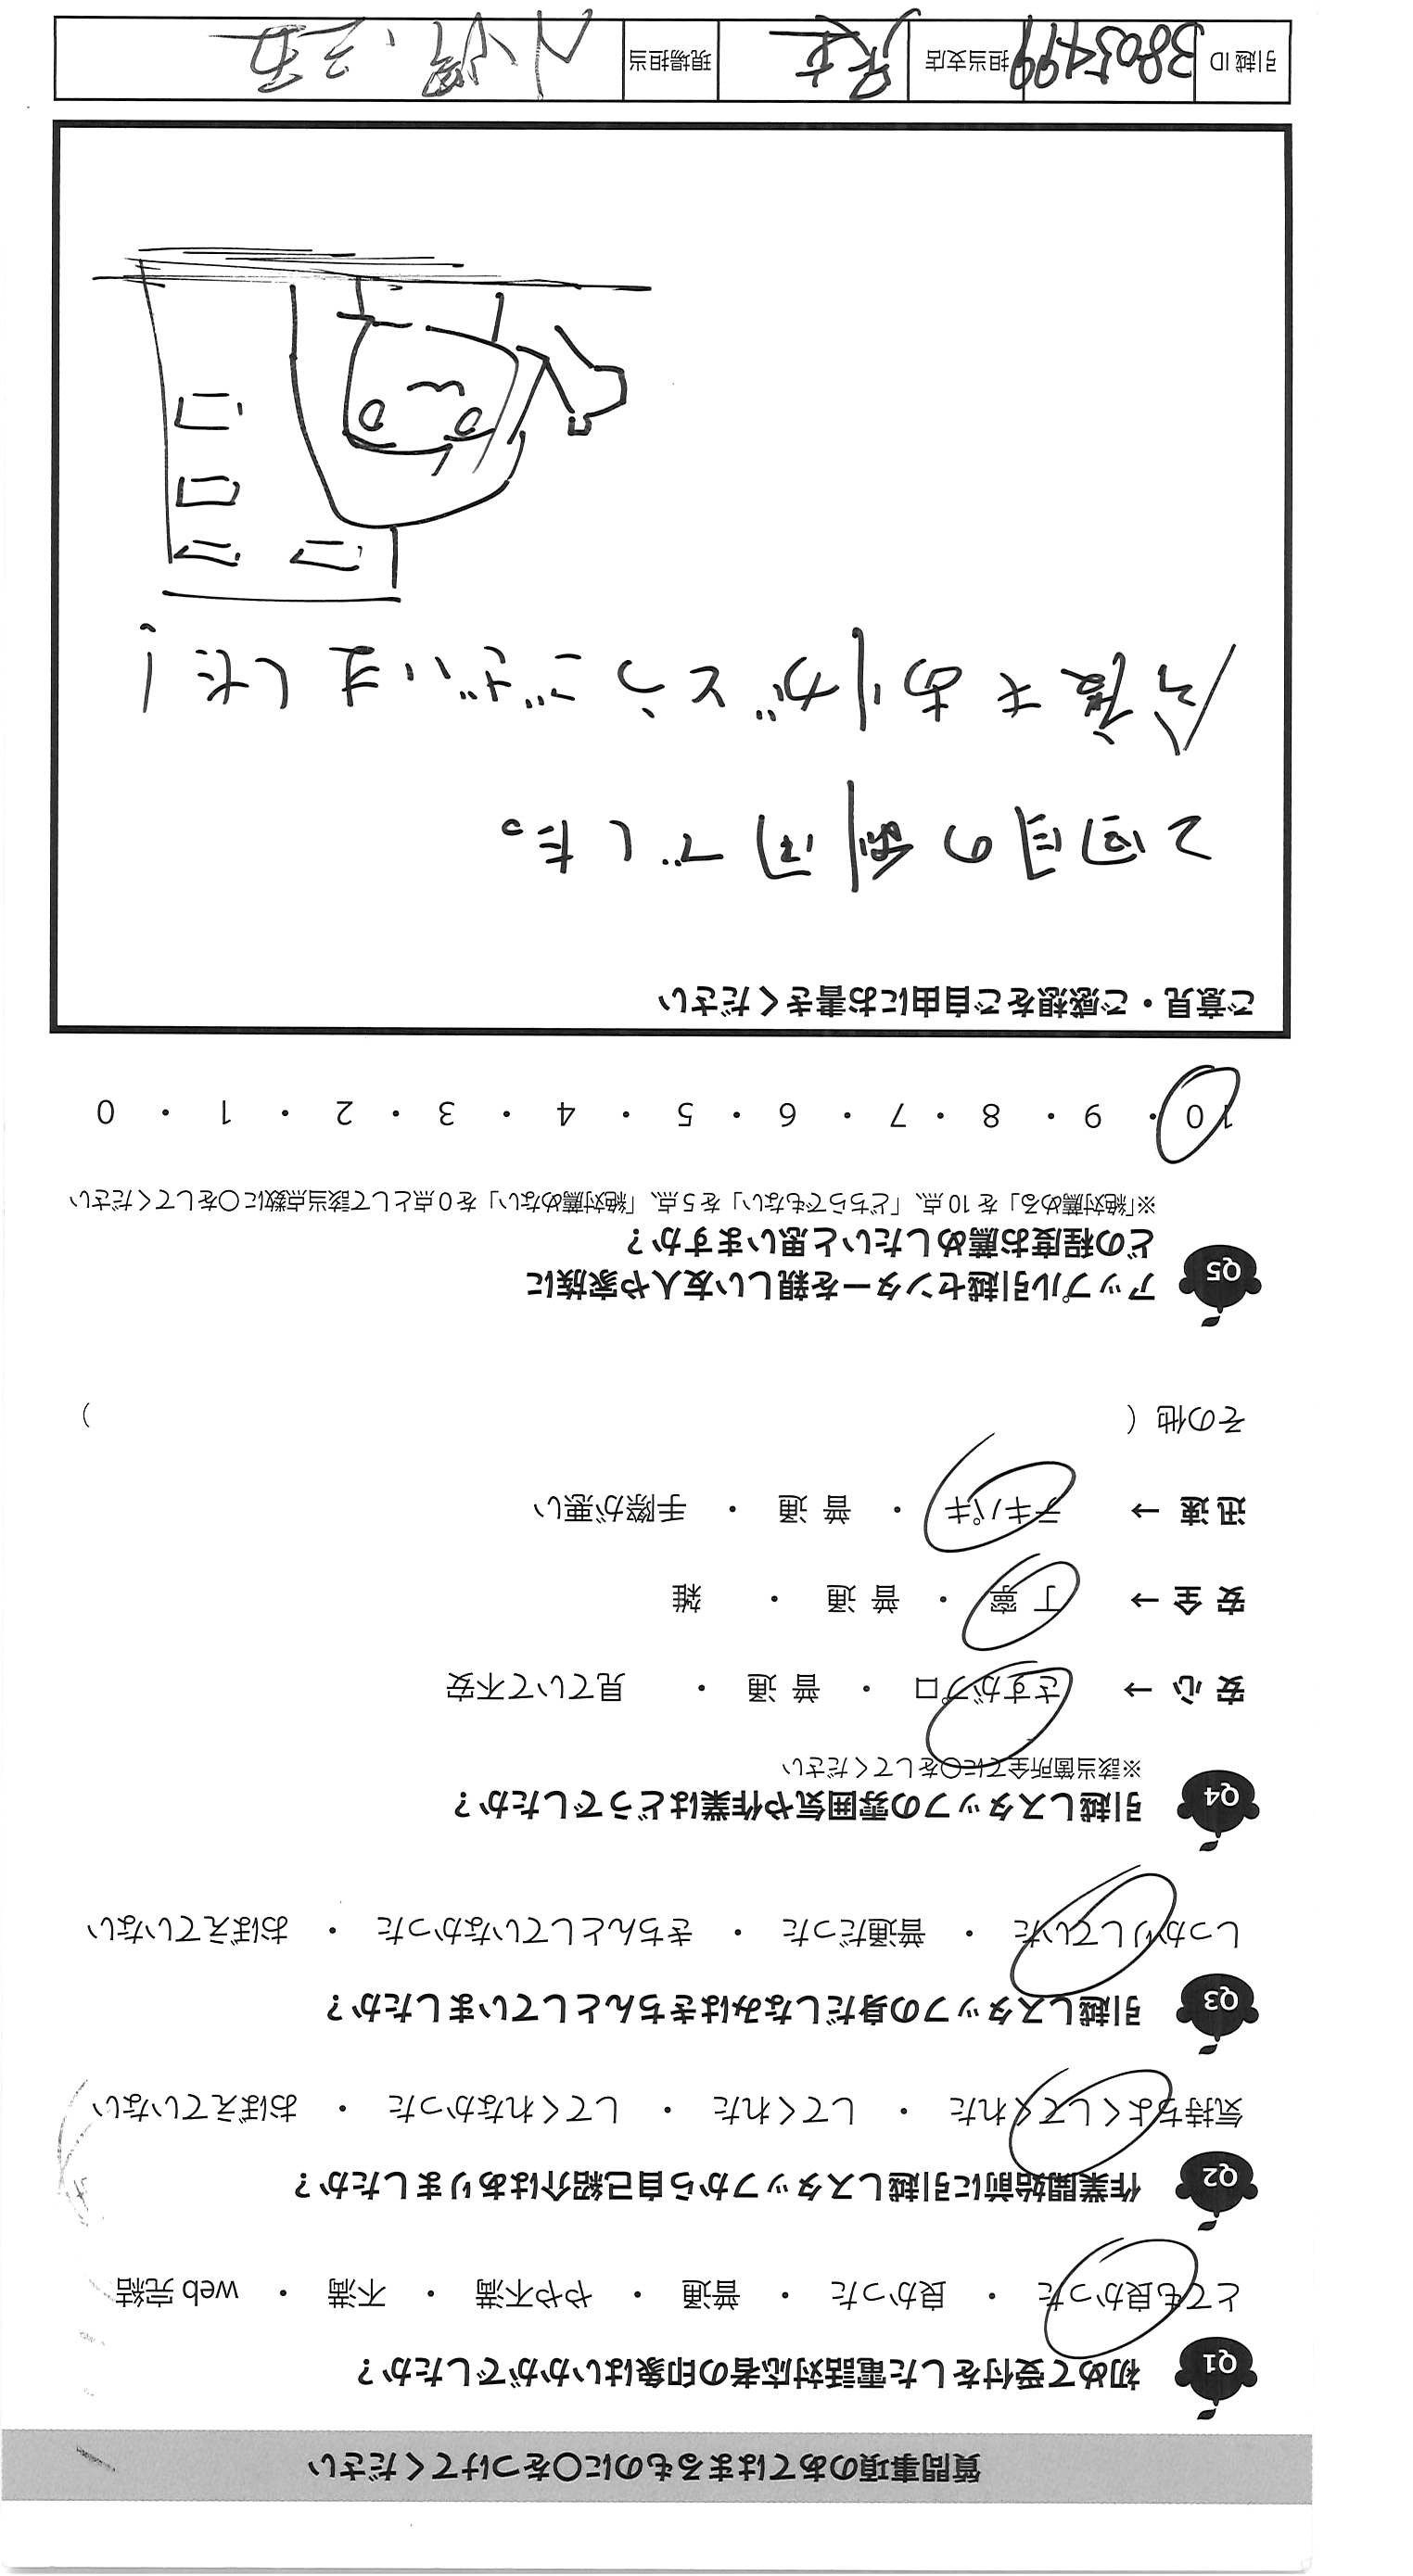 質問事項のあてはまるものに〇をつけてください
Q1 初めて受付をした電話対応者の印象はいかがでしたか？
とても良かった ・ 良かった ・ 普通 ・ やや不満 ・ 不満 ・ web 完結
Q2 作業開始前に引越しスタッフから自己紹介はありましたか？
気持ちよくしてくれた ・ してくれた ・ してくれなかった ・ おぼえていない
Q3 引越しスタッフの身だしなみはきちんとしていましたか？
しっかりしていた ・ 普通だった ・ きちんとしていなかった ・ おぼえていない
Q4 引越しスタッフの雰囲気や作業はどうでしたか？
※該当箇所全てに〇をしてください
安 心 → さすがプロ ・ 普 通 ・ 見ていて不安
安 全 → 丁 寧 ・ 普 通 ・ 雑
迅 速 → テキパキ ・ 普 通 ・ 手際が悪い
その他（ ）
Q5 アップル引越センターを親しい友人や家族に
どの程度お薦めしたいと思いますか？
※「絶対薦める」を 10 点、「どちらでもない」を 5 点、「絶対薦めない」を 0 点として該当点数に〇をしてください
10 ・ 9 ・ 8 ・ 7 ・ 6 ・ 5 ・ 4 ・ 3 ・ 2 ・ 1 ・ 0
ご意見・ご感想をご自由にお書きください
2回目の利用でした。
今度もありがとうございました！
引越 ID 3805499 担当支店 現場担当